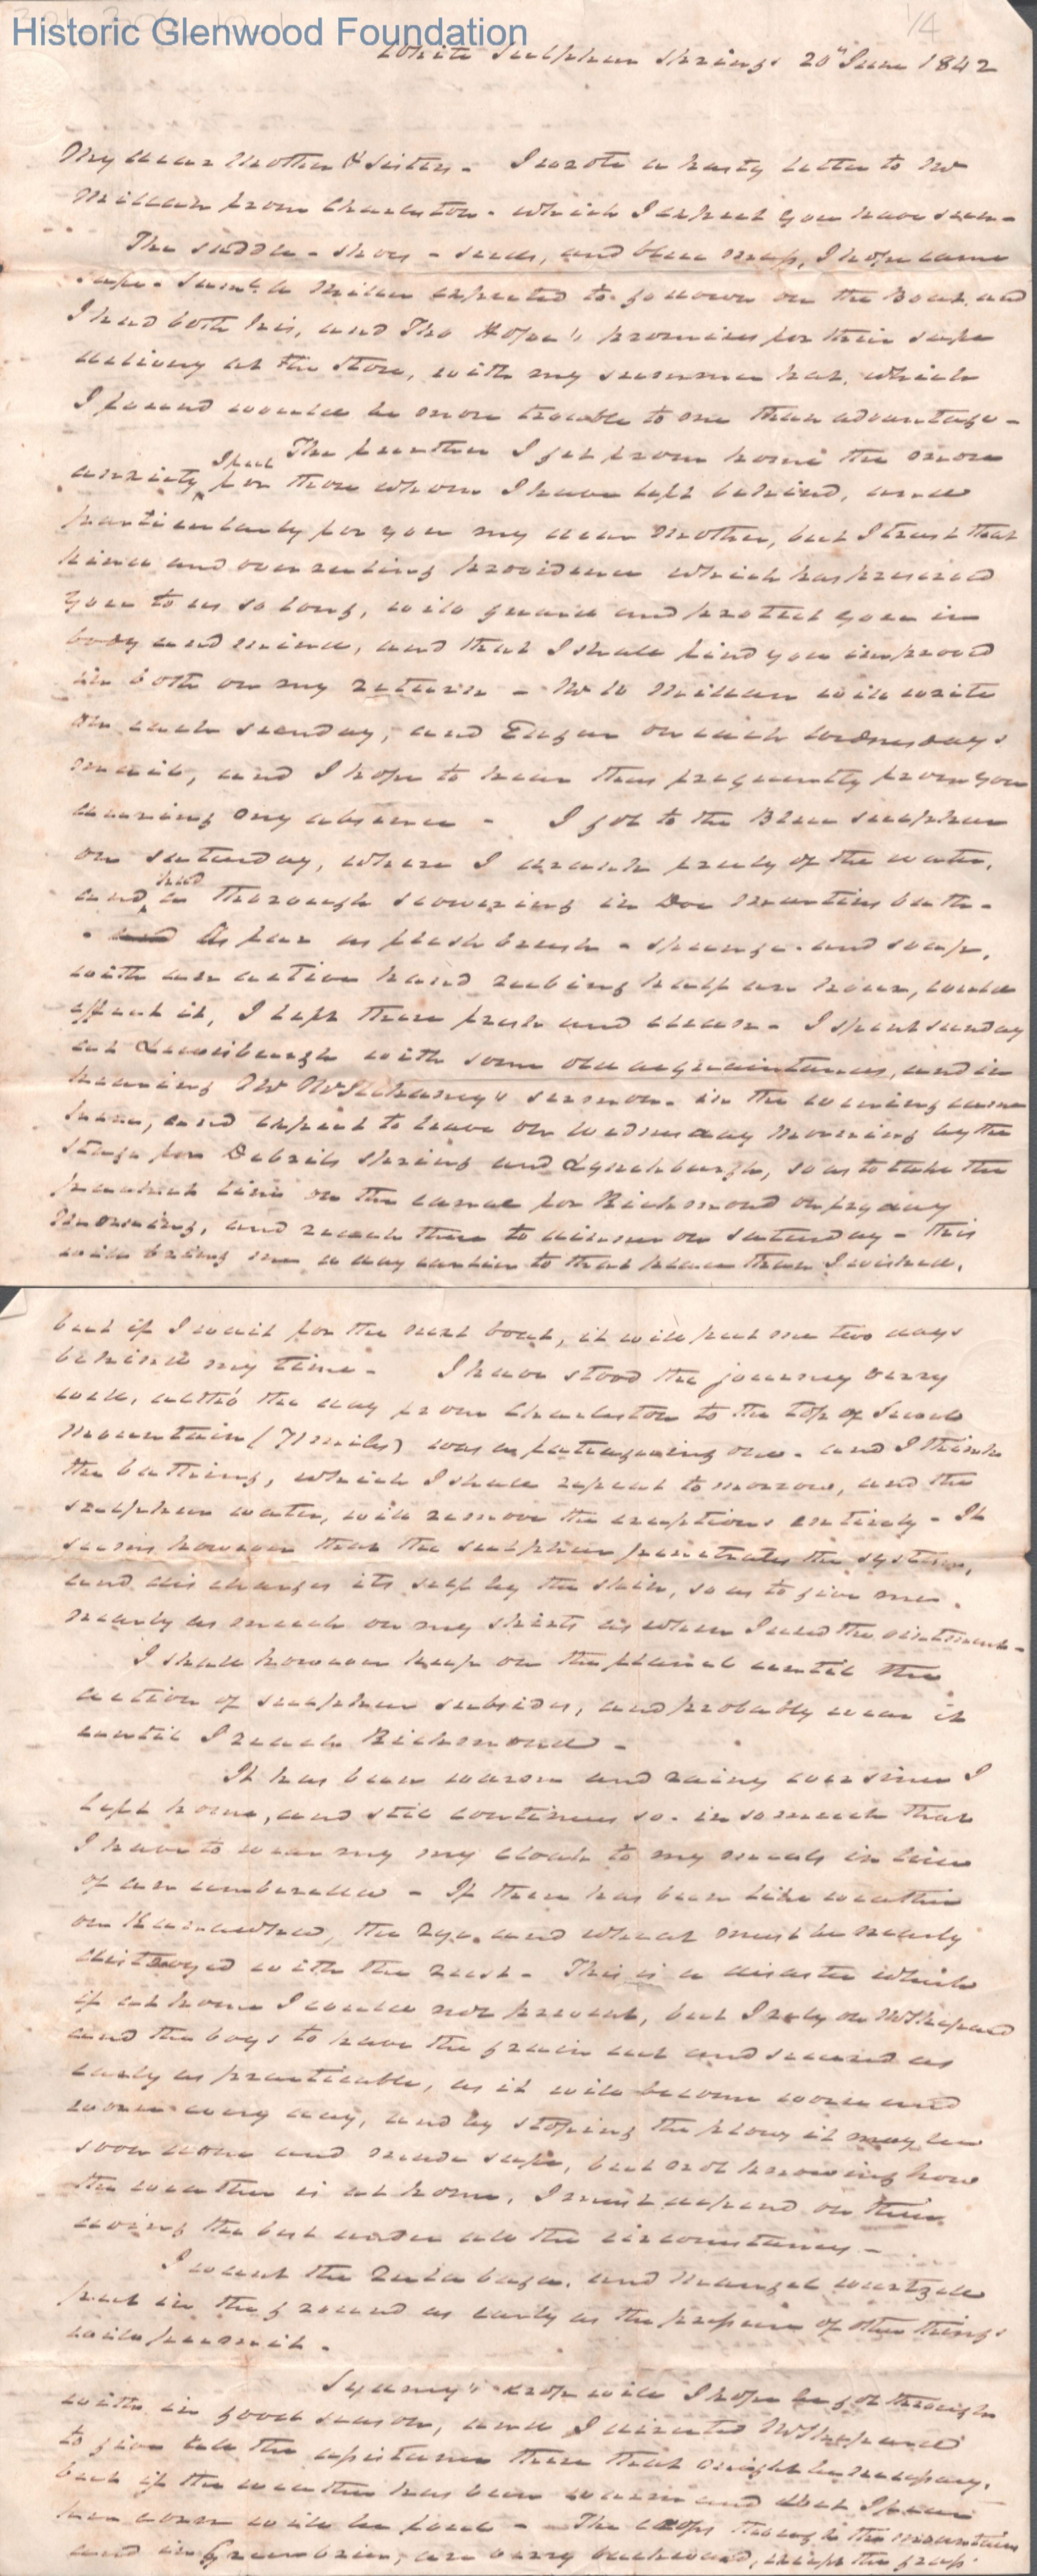 Historic Glenwood Foundation
1/4
White Sulphur Springs 20th June 1842
My dear Mother & Sister - I wrote a hasty letter to Mr
Millan from Charleston - which I expect you have seen -
The saddle - shoes - seeds, and blue map, I hope came
safe - Saml. A Miller expected to go down on the Boat and
I had both his, and Tho Hope's promises for their safe
delivery at the Store, with my summer hat, which
I found would be more trouble to me than advantage -
The further I get from home the more
anxiety I feel for those whom I have left behind, and
particularly for you my dear Mother, but I trust that
kind and overruling providence which has preserved
you to us so long, will guard and protect you in
body and mind, and that I shall find you improved
in both on my return - Mr Millan will write
on each sunday, and Edgar on each Wednesdays
mail, and I hope to hear thus frequently from you
during my absence - I got to the Blue sulphur
on saturday, where I drank freely of the water,
and had a thorough scowering in Doc Martins bath -
- and As far as flesh brush - spunge - and soap,
with an active hand rubing half an hour, could
effect it, I left there fresh and clean - I spent sunday
at Lewisburgh with some old acquaintances, and in
hearing Mr McElhaney's sermon - in the evening came
here, and expect to leave on Wednesday Morning by the
stage for Debrils Spring and Lynchburgh, so as to take the
packet line on the canal for Richmond on fryday
Morning, and reach there to dinner on saturday - this
will bring me a day earlier to that place than I wished,
but if I wait for the next boat, it will put me two days
behind my time - I have stood the journey very
well, altho the day from Charleston to the top of Sewell
Mountain (71 miles) was a fatagueing one - and I think
the bathing, which I shall repeat to morrow, and the
sulphur water, will remove the eruptions entirely - It
seems however that the sulphur penetrates the system,
and discharges its self by the skin, so as to give me
nearly as much on my shirts as when I used the ointment -
I shall however keep on the flanel until the
action of sulphur subsides, and probably wear it
until I reach Richmond -
It has been warm and rainy ever since I
left home, and still continues so - in so much that
I have to wear my my cloak to my meals in lieu
of an umberella - If there has been like weather
on Kanawha, the rye and wheat must be nearly
distroyed with the rust - This is a disaster which
if at home I could not prevent, but I rely on Mr Shepard
and the boys to have the grain cut and secured as
early as practicable, as it will become worse and
worse every day, and by stoping the plows it may be
soon done and made safe, but not knowing how
the weather is at home, I must depend on their
doing the best under all the circumstances -
I want the Ruta baga, and Mangel wurtzel
put in the ground as early as the pressure of other things
will permit -
Sydney's crop will I hope be got through
with in good season, and I directed Mr Shepard
to give all the assistance there that might be necessary,
but if the weather has been warm and wet I fear
her corn will be foul - The crops through the mountains
and in Greenbrier, are very backward, except the grass